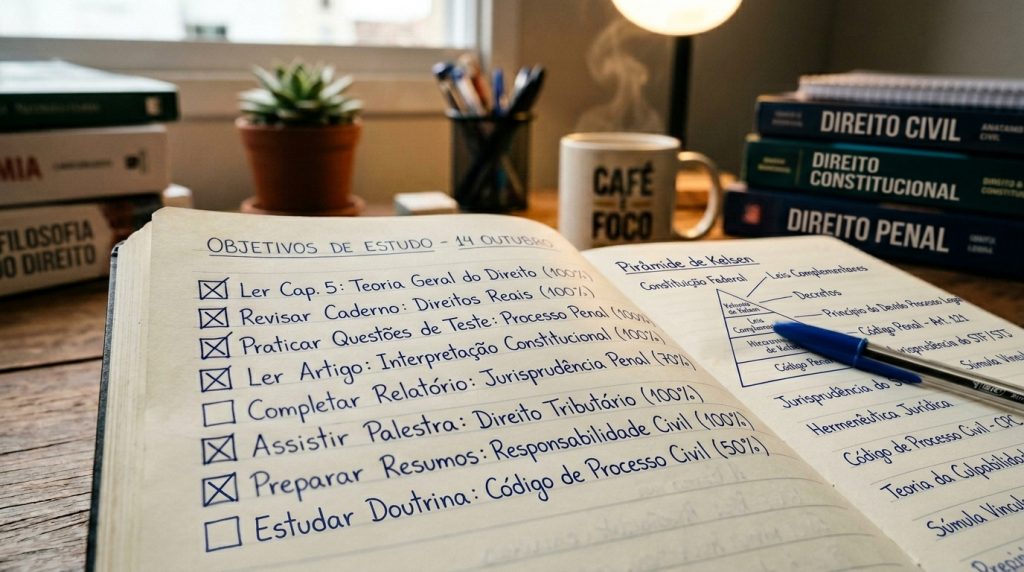 MIA
FILOSOFIA
DO DIREITO
CAFÉ
E
FOCO
DIREITO CIVIL
DIREITO
CONSTITUCIONAL
DIREITO PENAL
OBJETIVOS DE ESTUDO - 14 OUTUBRO
Ler Cap. 5: Teoria Geral do Direito (100%)
Revisar Caderno: Direitos Reais (100%)
Praticar Questões de Teste: Processo Penal (100%)
Ler Artigo: Interpretação Constitucional (100%)
Completar Relatório: Jurisprudência Penal (70%)
Assistir Palestra: Direito Tributário (100%)
Preparar Resumos: Responsabilidade Civil (100%)
Estudar Doutrina: Código de Processo Civil (50%)
Pirâmide de Kelsen
Constituição Federal
Leis Complementares
Decretos
Princípio do Devido Processo Legal
Código Penal - Art. 121
Jurisprudência do STF/STJ
Súmula
de Kelsen
Leis
Código Penal
Jurisprudência do
Hermenêutica Jurídica
Código de Processo Civil - CPC
Teoria da Culpabilidade
Súmula